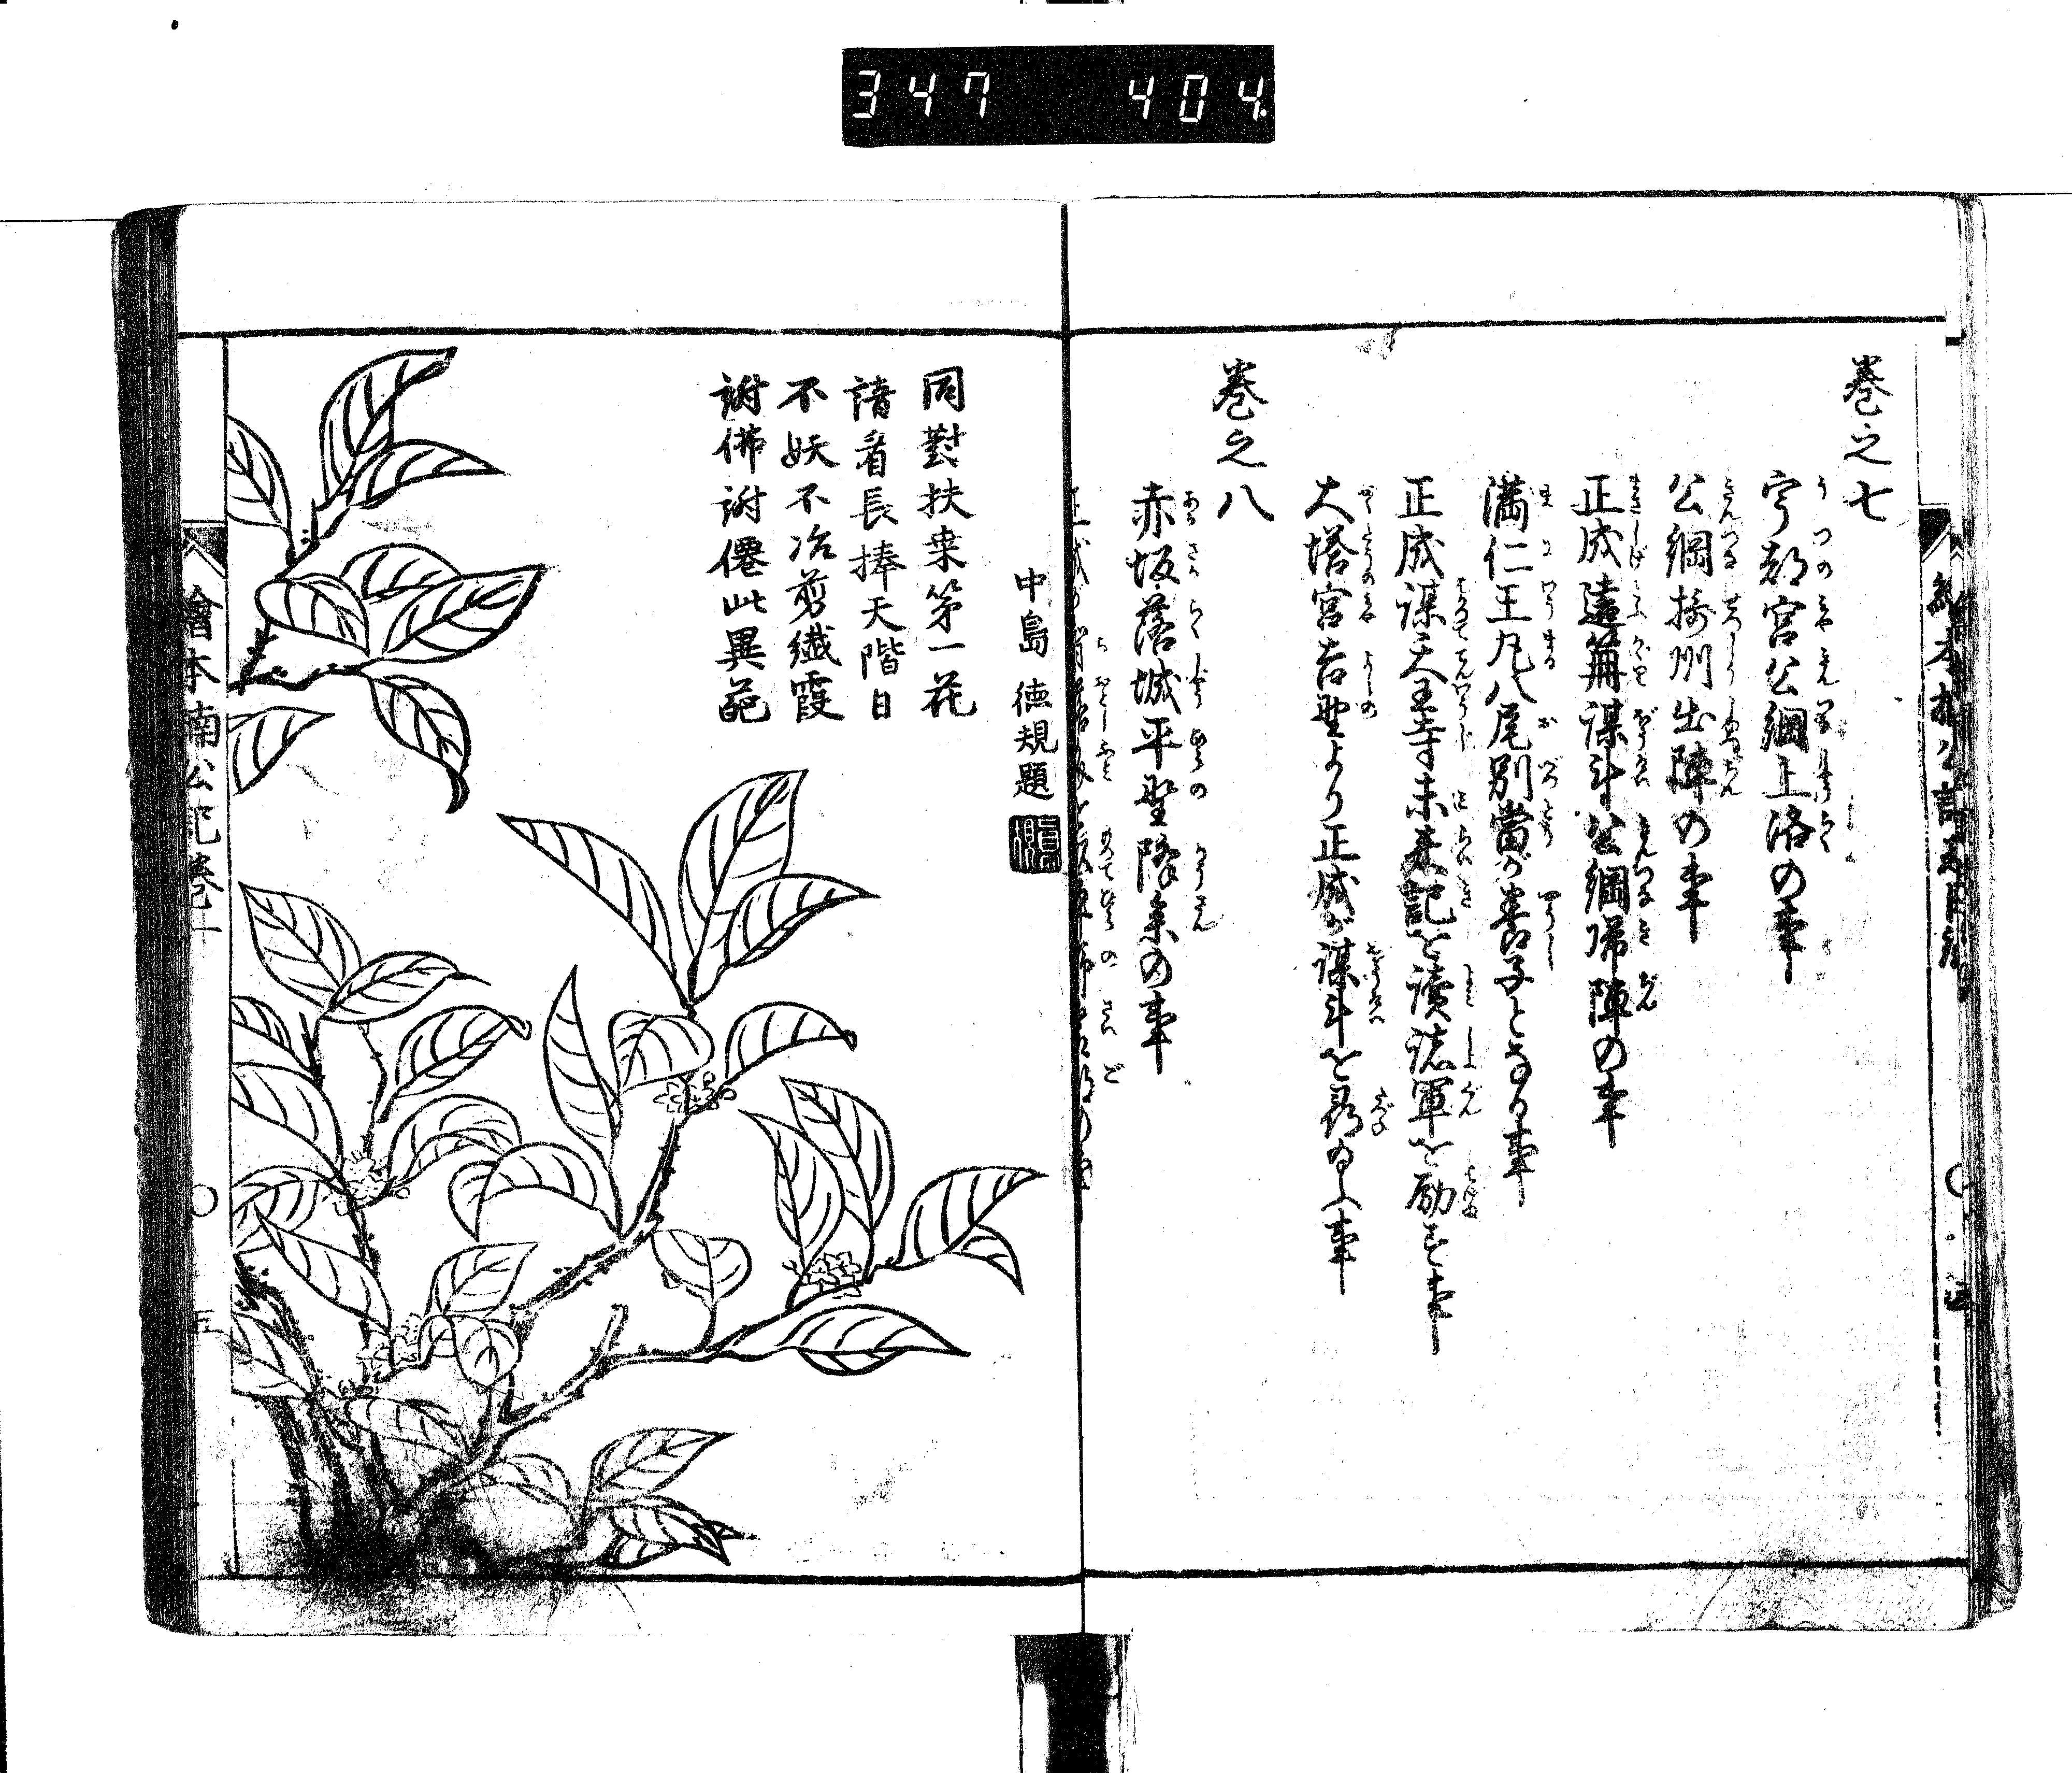 347 404
巻之七
宇都宮公綱上洛の事
公綱摂州出陣の事
正成遠篝謀斗公綱帰陣の事
満仁王丸八尾別當が養子となる事
正成謀天王寺未来記を讀諸軍を励す事
大塔宮吉野より正成が謀斗を尋ね給ふ事
巻之八
赤坂落城平野降参の事
中島徳規題
同對扶桒第一花
請看長捧天階日
不妖不冶剪繊霞
謝佛謝僊此異葩
繪本楠公記巻一